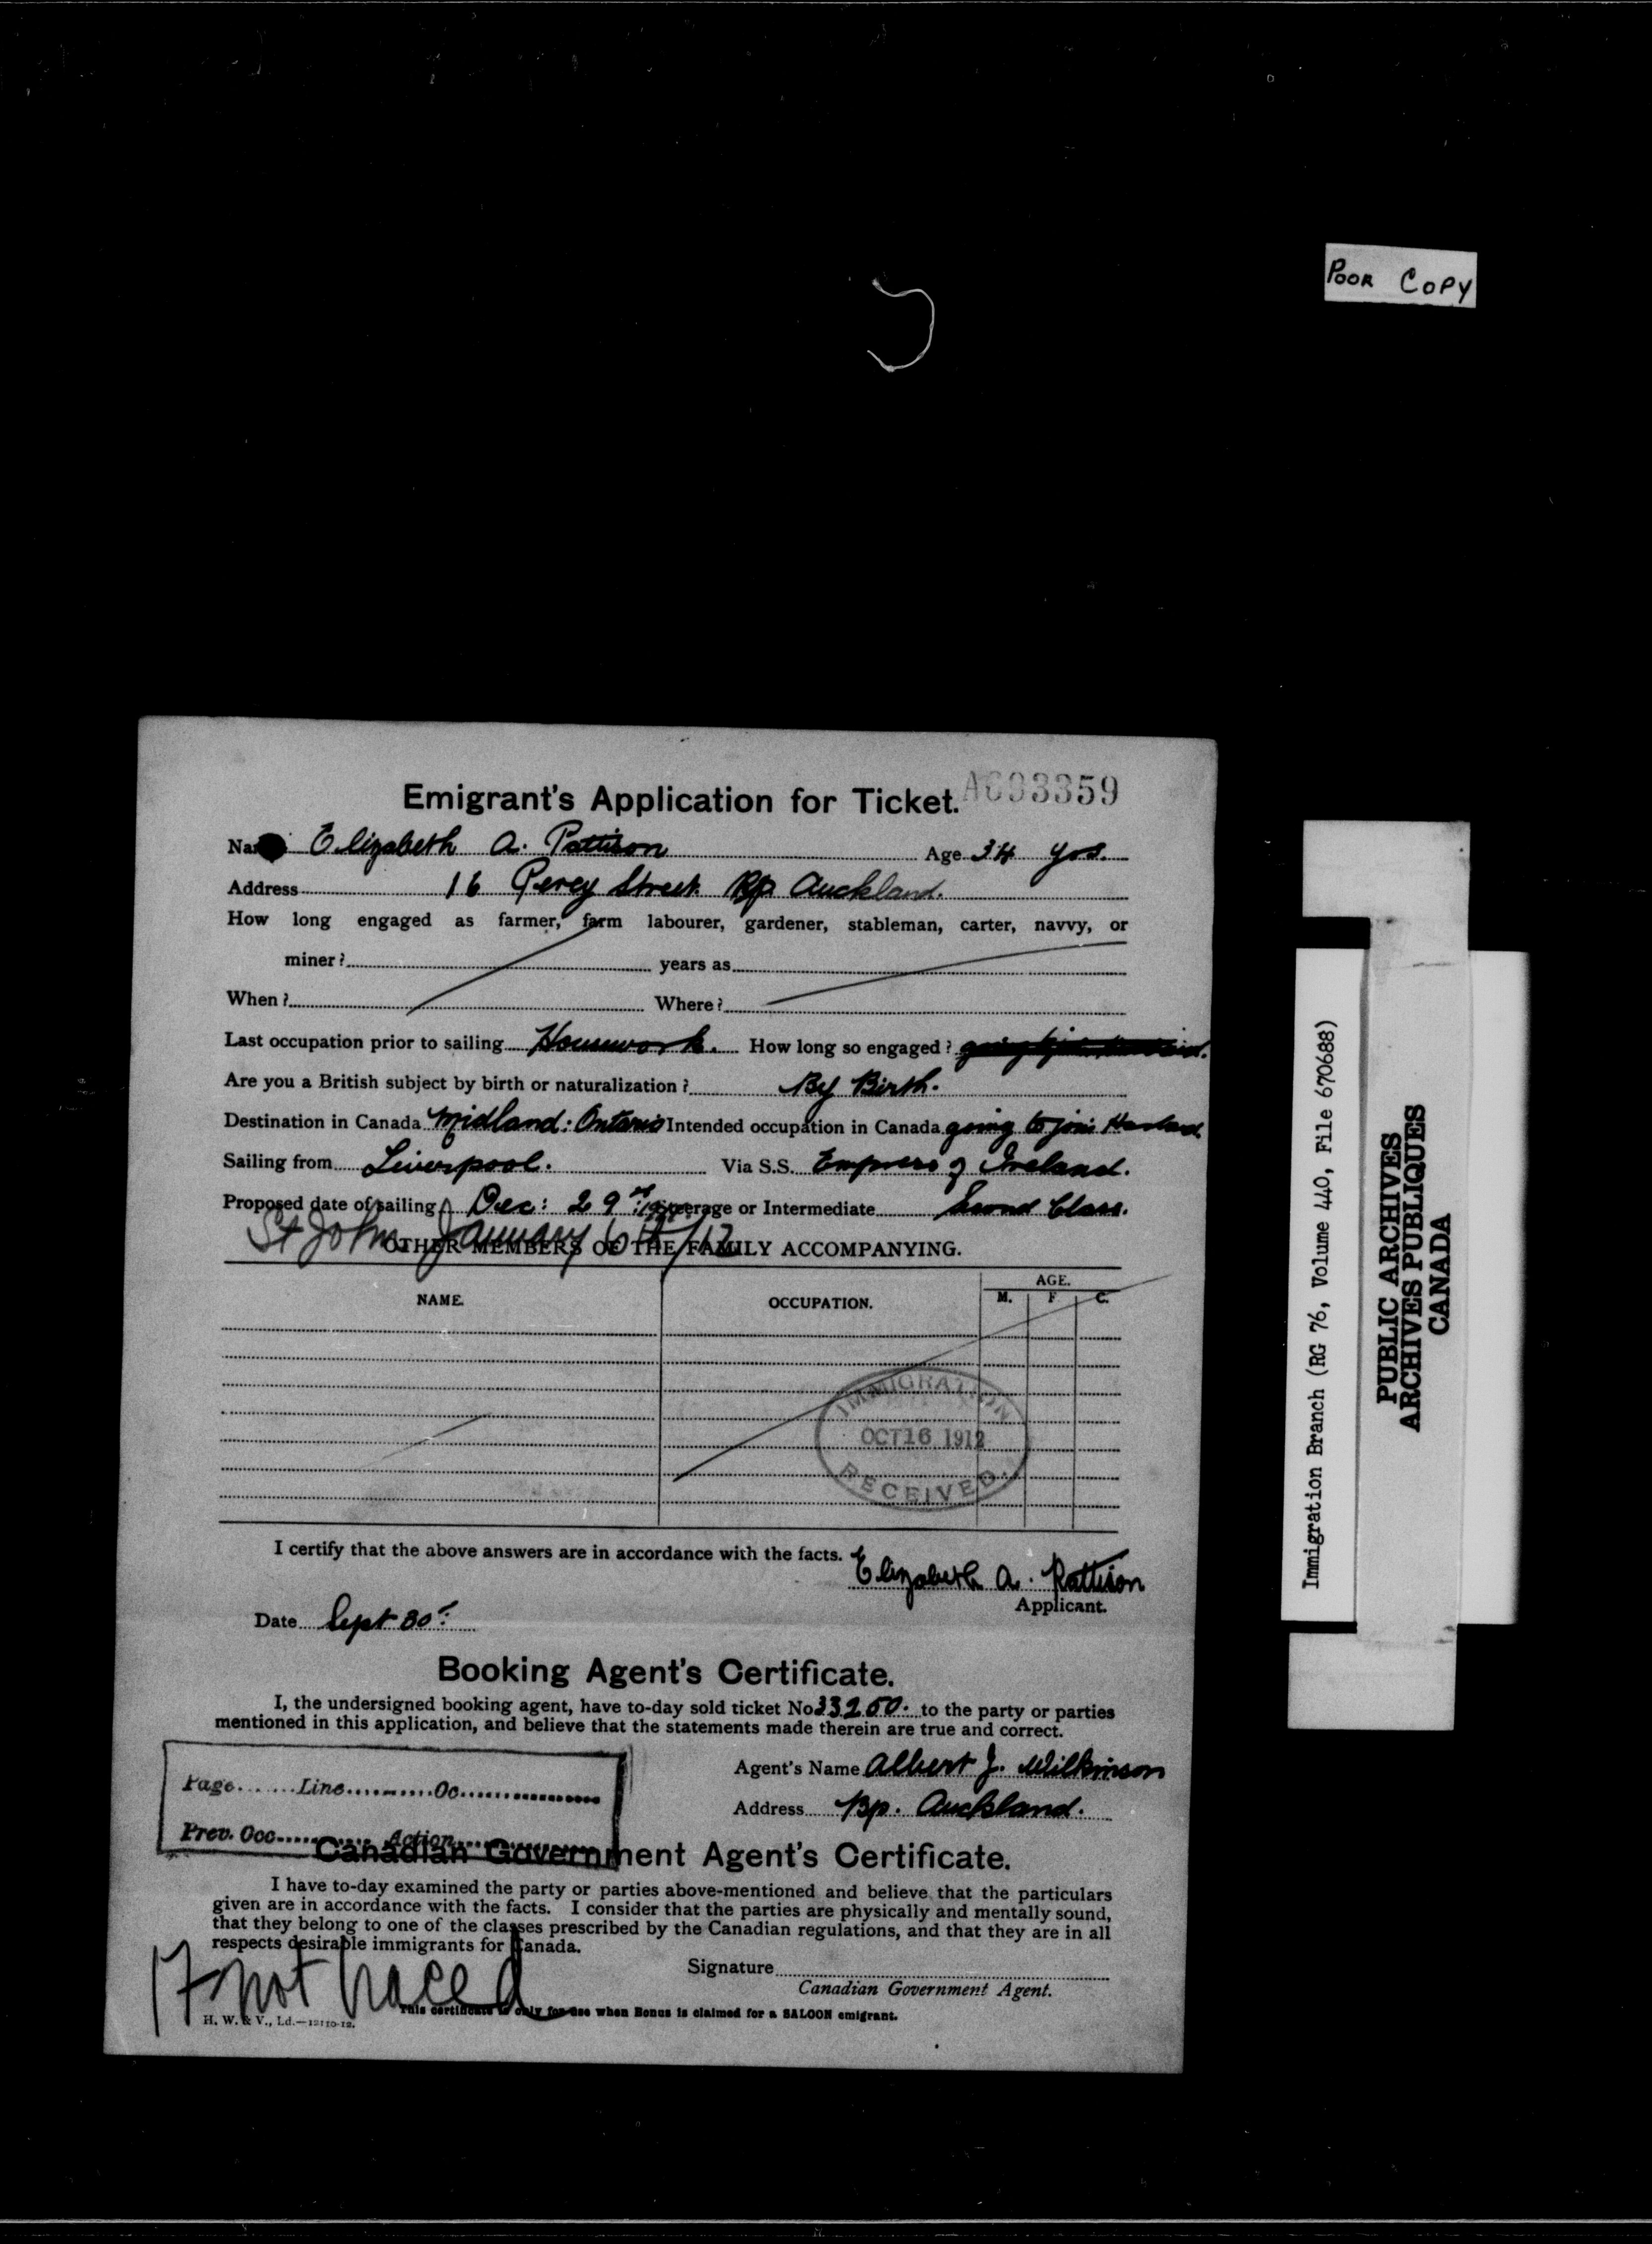 POOR COPY
Emigrant's Application for Ticket. A693359
Name Elizabeth A. Pattison Age 34 yrs.
Address 16 Percy Street Bp. Auckland.
How long engaged as farmer, farm labourer, gardener, stableman, carter, navvy, or
miner? years as
When? Where?
Last occupation prior to sailing Housework. How long so engaged?
Are you a British subject by birth or naturalization? By Birth.
Destination in Canada Midland: Ontario Intended occupation in Canada going to join Husband
Sailing from Liverpool. Via S.S. Empress of Ireland.
Proposed date of sailing Dec: 29th Steerage or Intermediate Second Class.
St John January 6th/12
OTHER MEMBERS OF THE FAMILY ACCOMPANYING.
NAME. OCCUPATION. AGE.
M. F. C.
IMMIGRATION
OCT 16 1912
RECEIVED
I certify that the above answers are in accordance with the facts.
Elizabeth A. Pattison
Applicant.
Date Sept 30th
Booking Agent's Certificate.
I, the undersigned booking agent, have to-day sold ticket No 33250. to the party or parties
mentioned in this application, and believe that the statements made therein are true and correct.
Agent's Name Albert J. Wilkinson
Address Bp. Auckland.
Page.......Line..........Oc...............
Prev. Occ............ Action..............
Canadian Government Agent's Certificate.
I have to-day examined the party or parties above-mentioned and believe that the particulars
given are in accordance with the facts. I consider that the parties are physically and mentally sound,
that they belong to one of the classes prescribed by the Canadian regulations, and that they are in all
respects desirable immigrants for Canada.
Signature
Canadian Government Agent.
17 not traced
This certificate is only for use when Bonus is claimed for a SALOON emigrant.
H. W. & V., Ld.—12110-12.
Immigration Branch (RG 76, Volume 440, File 670688)
PUBLIC ARCHIVES
ARCHIVES PUBLIQUES
CANADA